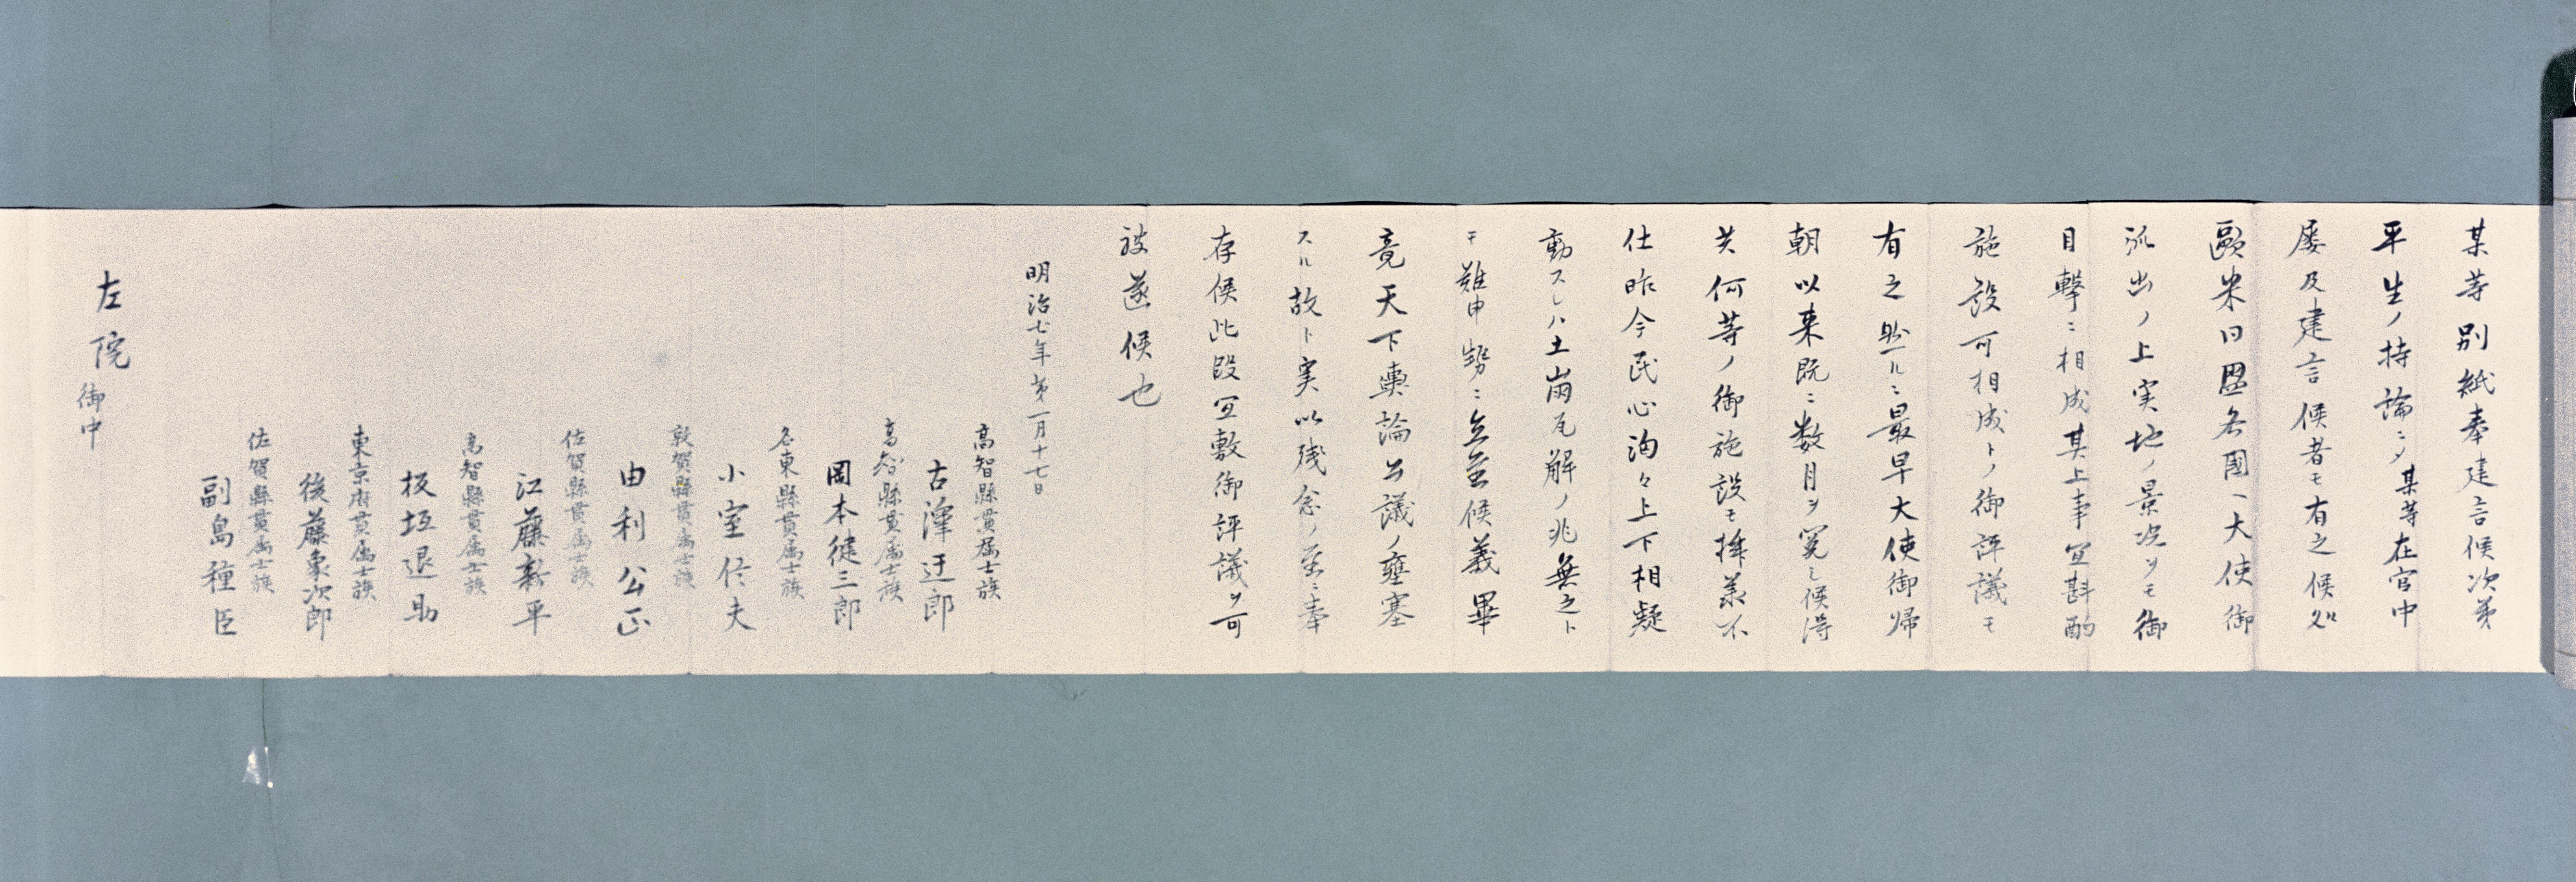 某等別紙奉建言候次第
平生ノ持論ニシテ某等在官中
屡及建言候者モ有之候処
歐米同盟各國ヘ大使御
派出ノ上実地ノ景況ヲモ御
目撃ニ相成其上事宜斟酌
施設可相成トノ御評議モ
有之然ルニ最早大使御帰
朝以来既ニ数月ヲ閲シ候得
共何等ノ御施設モ拝承不
仕昨今民心洶々上下相疑
動スレハ土崩瓦解ノ兆無之ト
モ難申勢ニ立至候義畢
竟天下輿論公議ノ壅塞
スル故ト実以残念ノ至ニ奉
存候此段宜敷御評議ヲ可
被遂候也
明治七年第一月十七日
高智縣貫属士族
古澤迂郎
高智縣貫属士族
岡本健三郎
名東縣貫属士族
小室信夫
敦賀縣貫属士族
由利公正
佐賀縣貫属士族
江藤新平
高智縣貫属士族
板垣退助
東京府貫属士族
後藤象次郎
佐賀縣貫属士族
副島種臣
左院御中